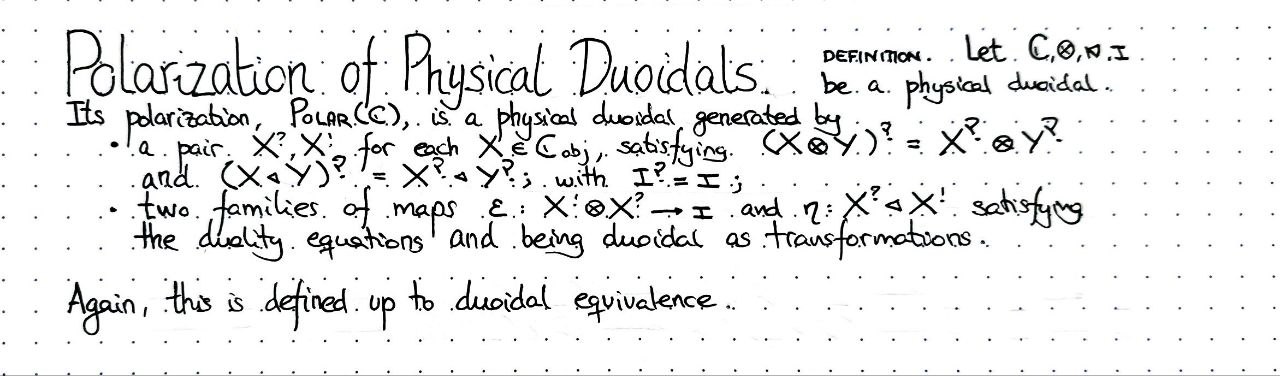 Polarization of Physical Duoidals.
DEFINITION. Let ℂ,⊗,◁,I
be a physical duoidal.
Its polarization, POLAR(ℂ), is a physical duoidal generated by
• a pair X?, X! for each X ∈ ℂobj, satisfying (X⊗Y)? = X? ⊗ Y?
and (X◁Y)? = X? ◁ Y?; with I? = I;
• two families of maps ε: X!⊗X? → I and η: X? ◁ X! satisfying
the duality equations and being duoidal as transformations.
Again, this is defined up to duoidal equivalence.